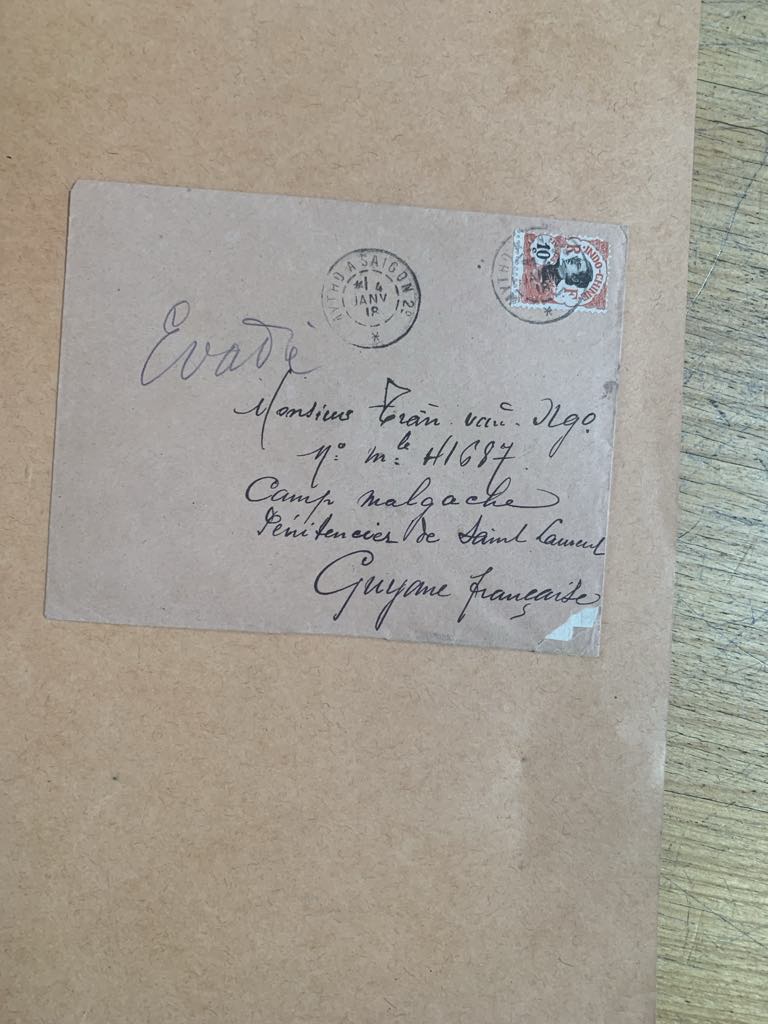 MYTHO A SAIGON 2º
*1 4
JANV
18
*
INDO-CHINE
10c
R F
MYTHO
JANV
18
*
Evadé
Monsieur Trân. van. Ngo.
Nº mle 41687.
Camp malgache
Pénitencier de Saint Laurent
Guyane française